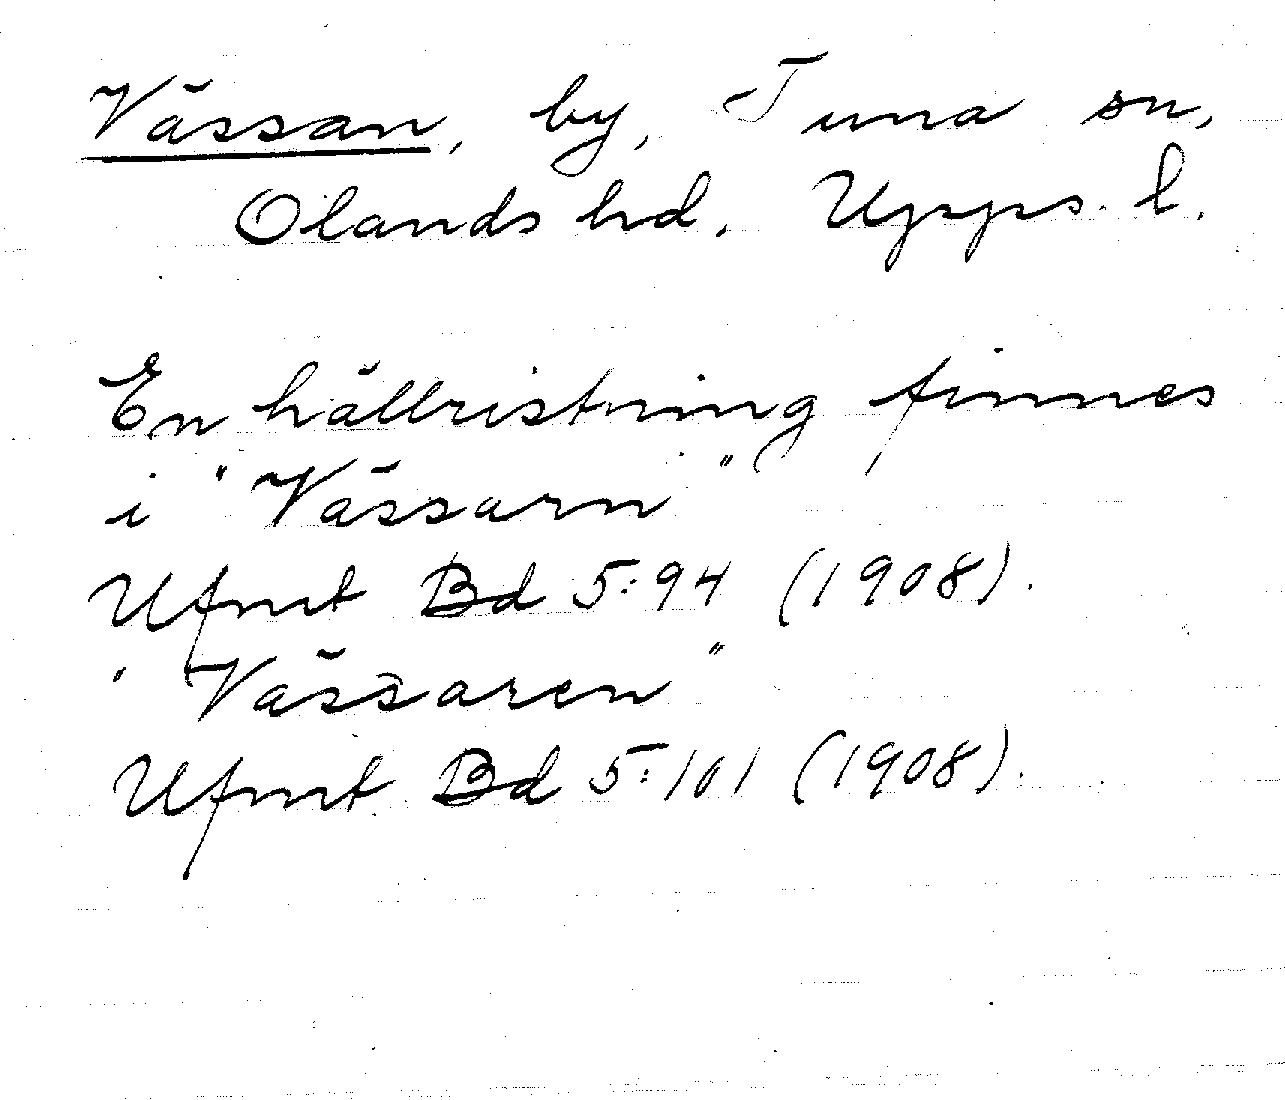 Vässan, by, Tuna sn,
Olands hd. Upps. l.
En hällristning finnes
i "Vässarn"
Ufmt Bd 5:94 (1908).
"Vässaren"
Ufmt Bd 5:101 (1908).